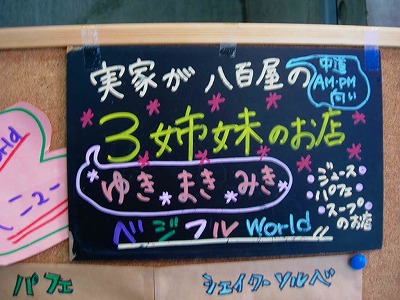 実家が八百屋の
中道
AM・PM
向い
3姉妹のお店
ゆき まき みき
ジュース
パフェ
スープ
のお店
ベジフルWorld
パフェ